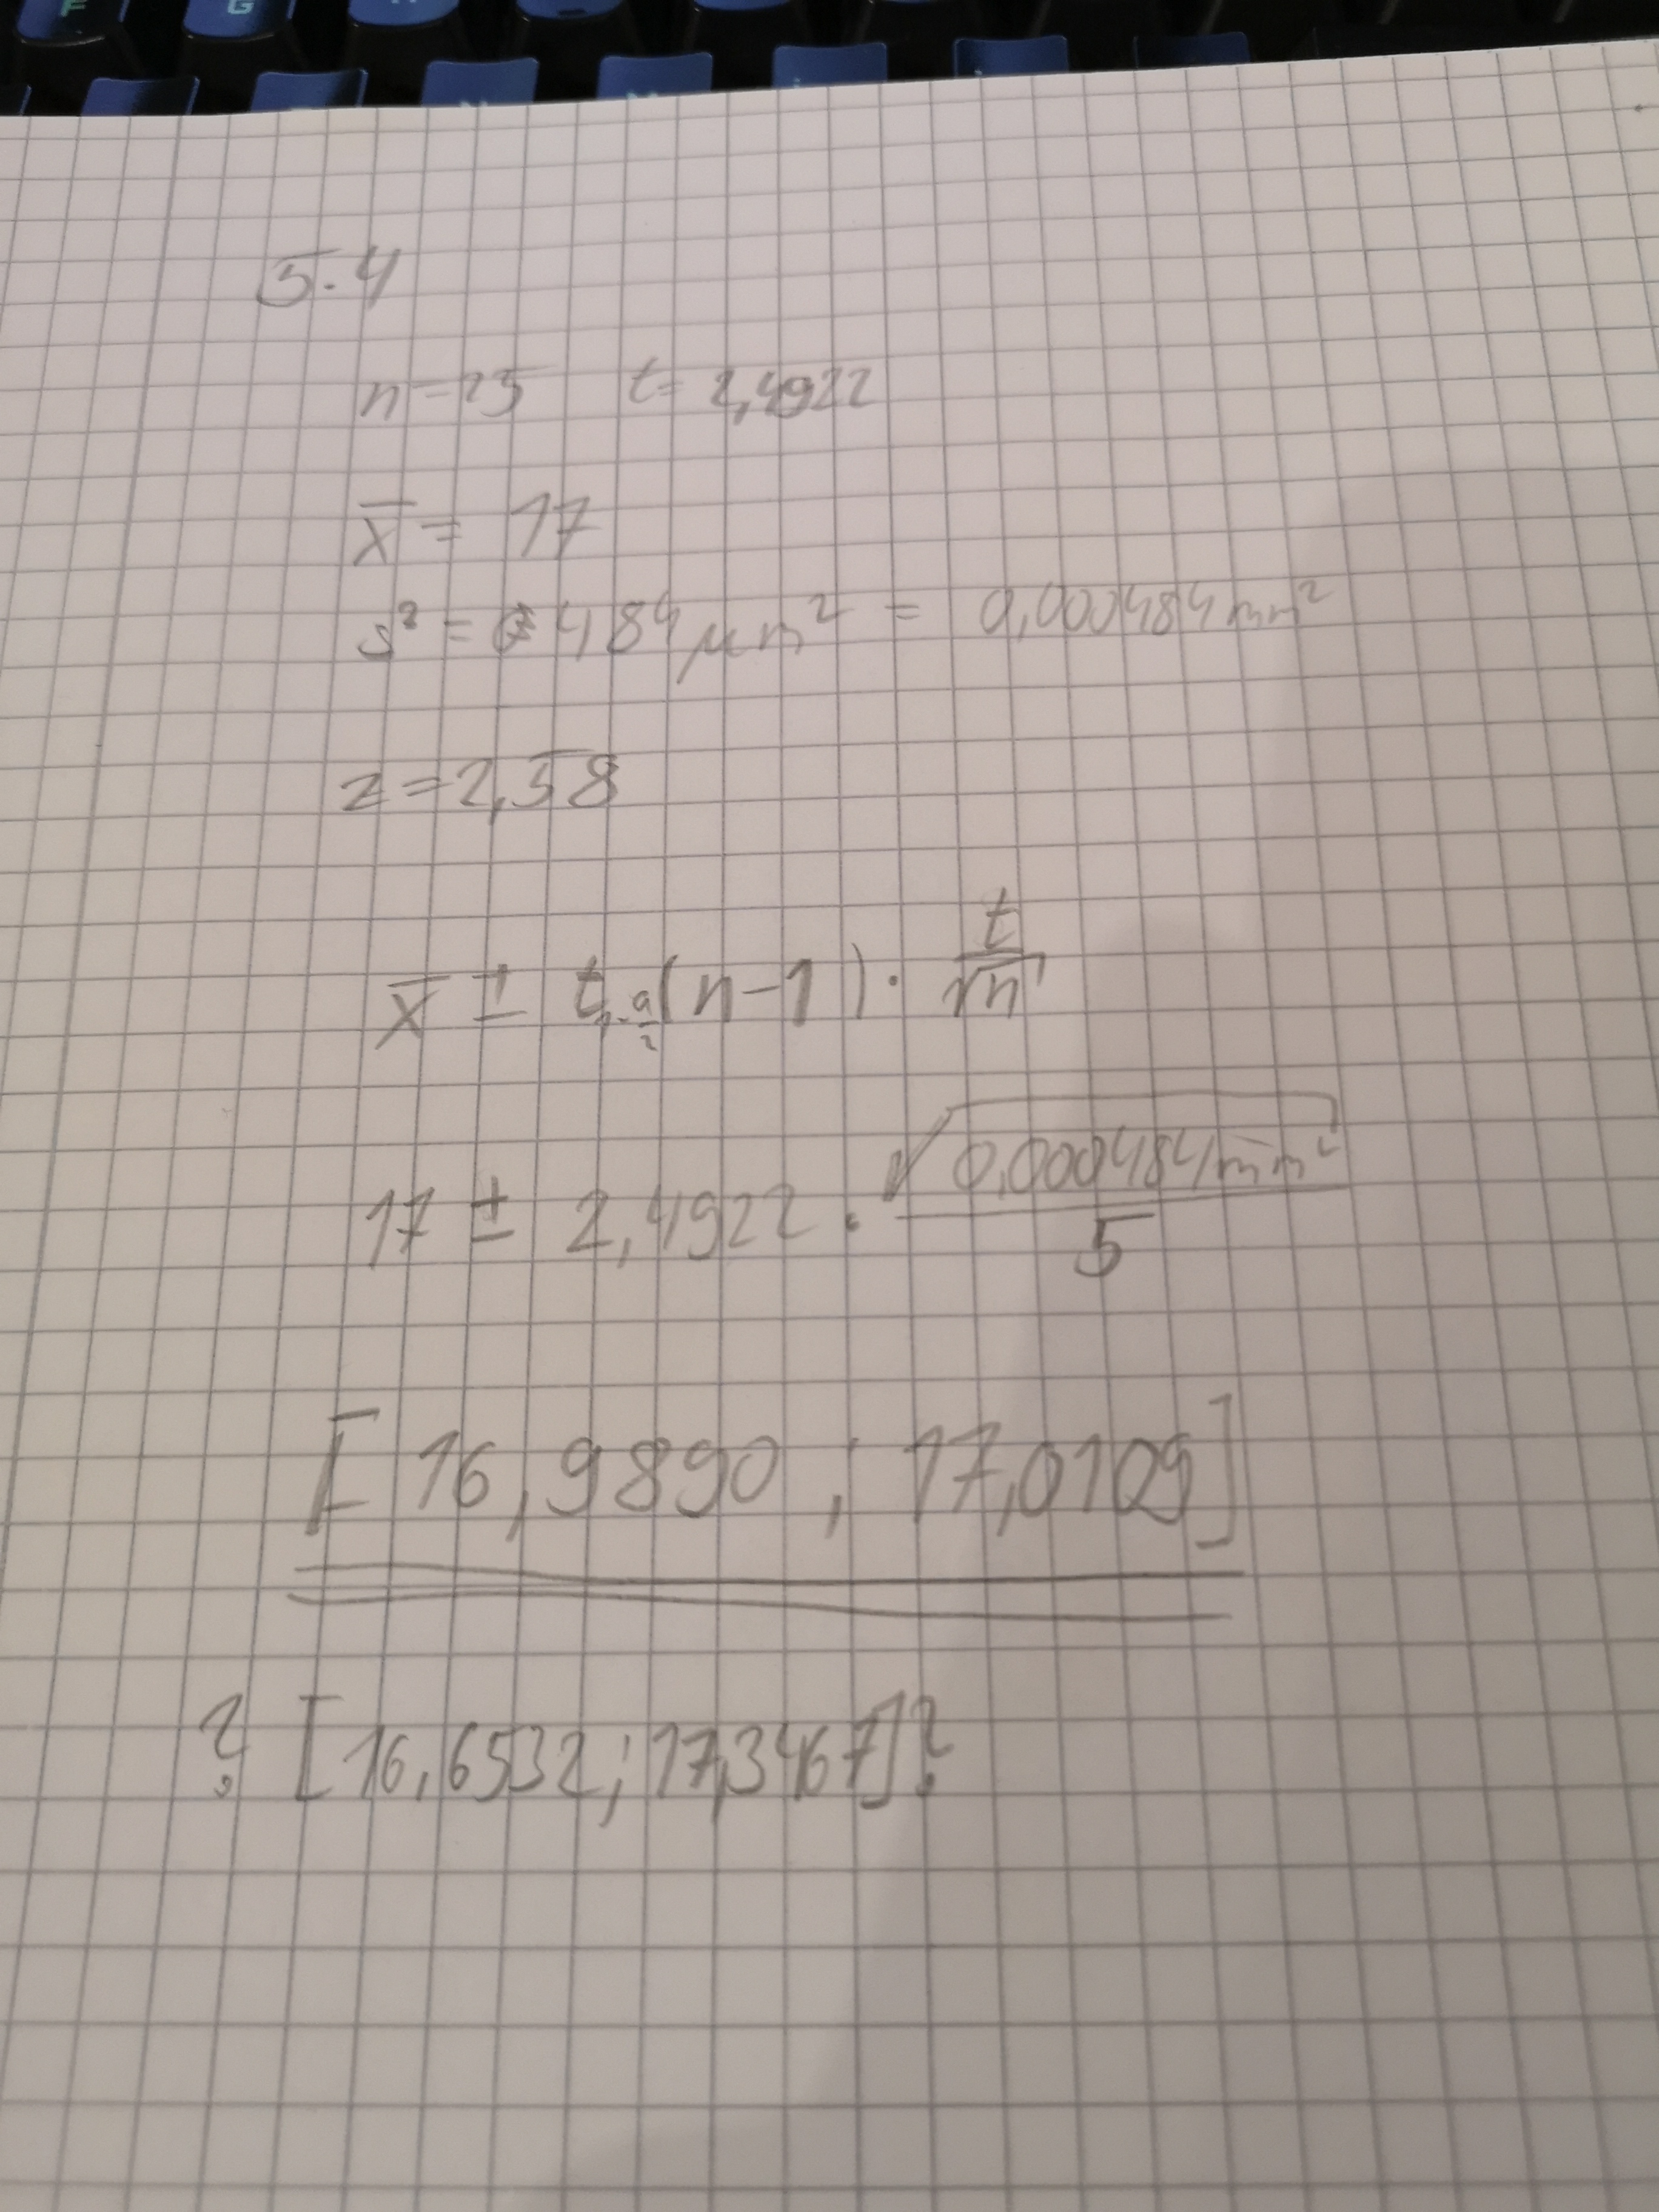 F G
5.4
n=25 t=2,4922
x̄ = 17
s² = 484 μm² = 0,000484mm²
z=2,58
x̄ ± t₁₋ₐ/₂(n-1) · t/√n
17 ± 2,4922 · √0,000484mm²/5
[16,9890 ; 17,0109]
? [16,6532 ; 17,3467] ?